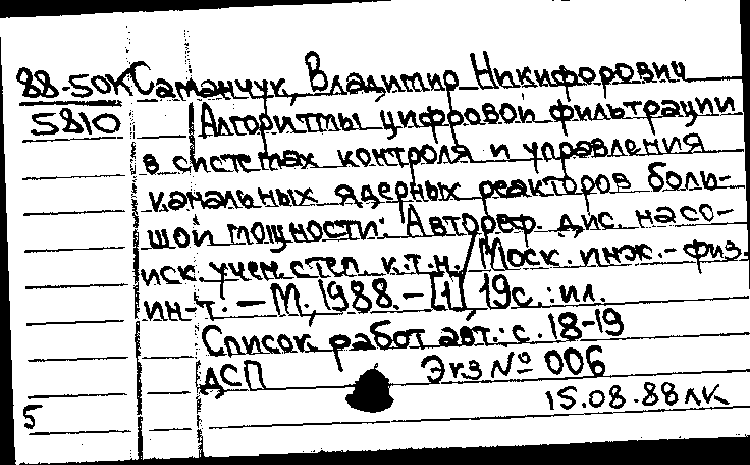 88-50К Саманчук, Владимир Никифорович
5810 Алгоритмы цифровой фильтрации
в системах контроля и управления
канальных ядерных реакторов боль-
шой мощности: Автореф. дис. на со-
иск. учен. степ. к.т.н. / Моск. инж.-физ.
ин-т. — М., 1988. — [1] 19с.: ил.
Список работ авт.: с. 18-19
ДСП Экз № 006
15.08.88 ЛК
5